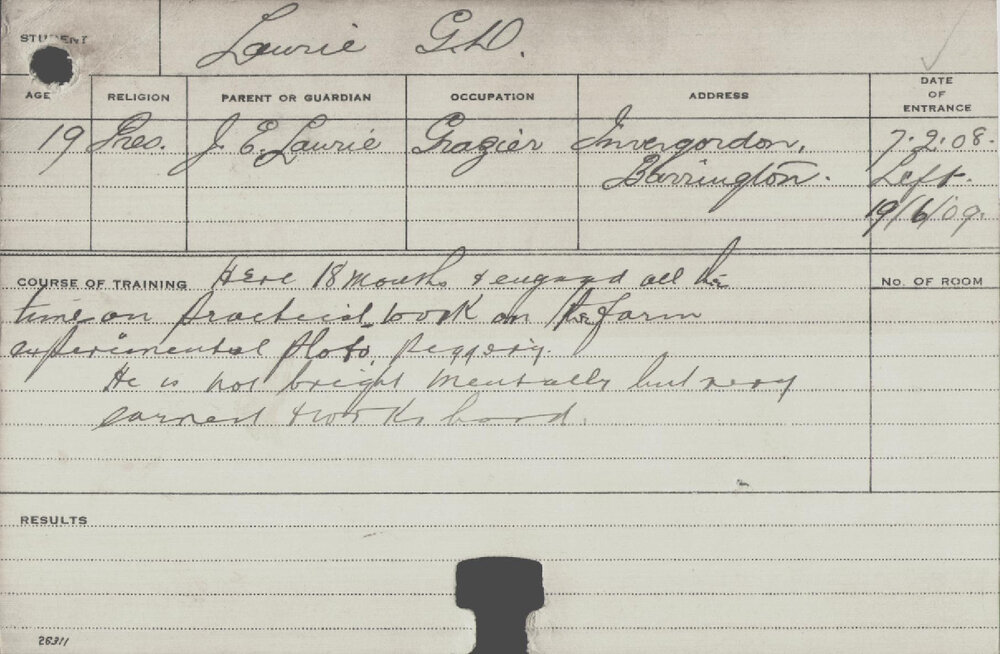 STUDENT Lawrie G.D.
AGE RELIGION PARENT OR GUARDIAN OCCUPATION ADDRESS DATE OF ENTRANCE
19 Pres. J. E. Lawrie Grazier Invergordon, 7.2.08.
Barrington. Left.
19/6/09.
COURSE OF TRAINING Here 18 months & engaged all the No. OF ROOM
time on practical work on the farm
experimental plots, piggery.
He is not bright mentally but very
earnest & works hard.
RESULTS
26311